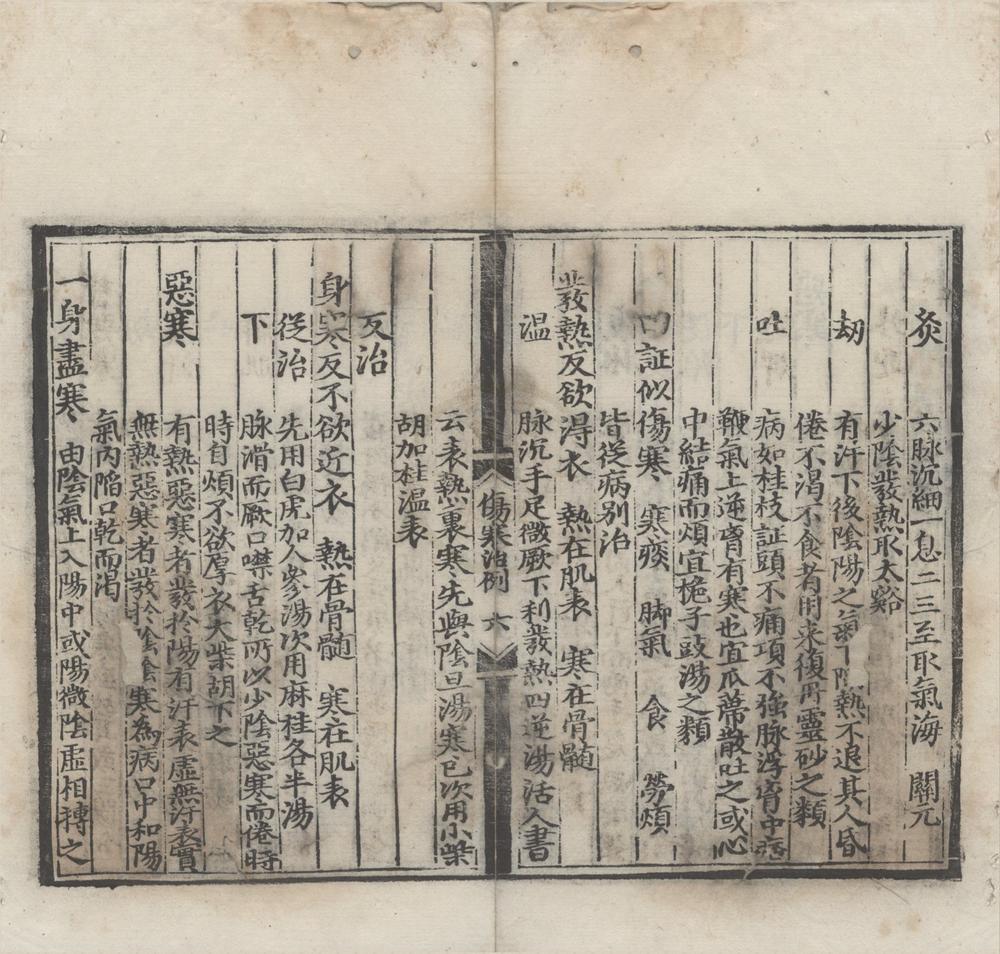 灸　六脉沉細一息二三至取氣海　關元
少陰發熱取太谿
劫　有汗下後陰陽之氣下陷熱不退其人昏
倦不渴不食者用來復丹靈砂之類
吐　病如桂枝証頭不痛項不強脉浮胷中痞
鞕氣上逆胷有寒也宜瓜蒂散吐之或心
中結痛而煩宜梔子豉湯之類
四証似傷寒　寒痰　脚氣　食　勞煩
皆從病別治
發熱反欲淂衣　熱在肌表　寒在骨髓
温　脉沉手足微厥下利發熱四逆湯活人書
傷寒治例　六
云表熱裏寒先與陰旦湯寒已次用小柴
胡加桂温表
反治
身寒反不欲近衣　熱在骨髓　寒在肌表
從治　先用白虎加人參湯次用麻桂各半湯
下　脉滑而厥口噤舌乾所以少陰惡寒而倦時
時自煩不欲厚衣大柴胡下之
惡寒　有熱惡寒者發扵陽有汗表虛無汗表實
無熱惡寒者發扵陰陰寒為病口中和陽
氣内陥口乾而渴
一身盡寒　由陰氣上入陽中或陽微陰虛相轉之